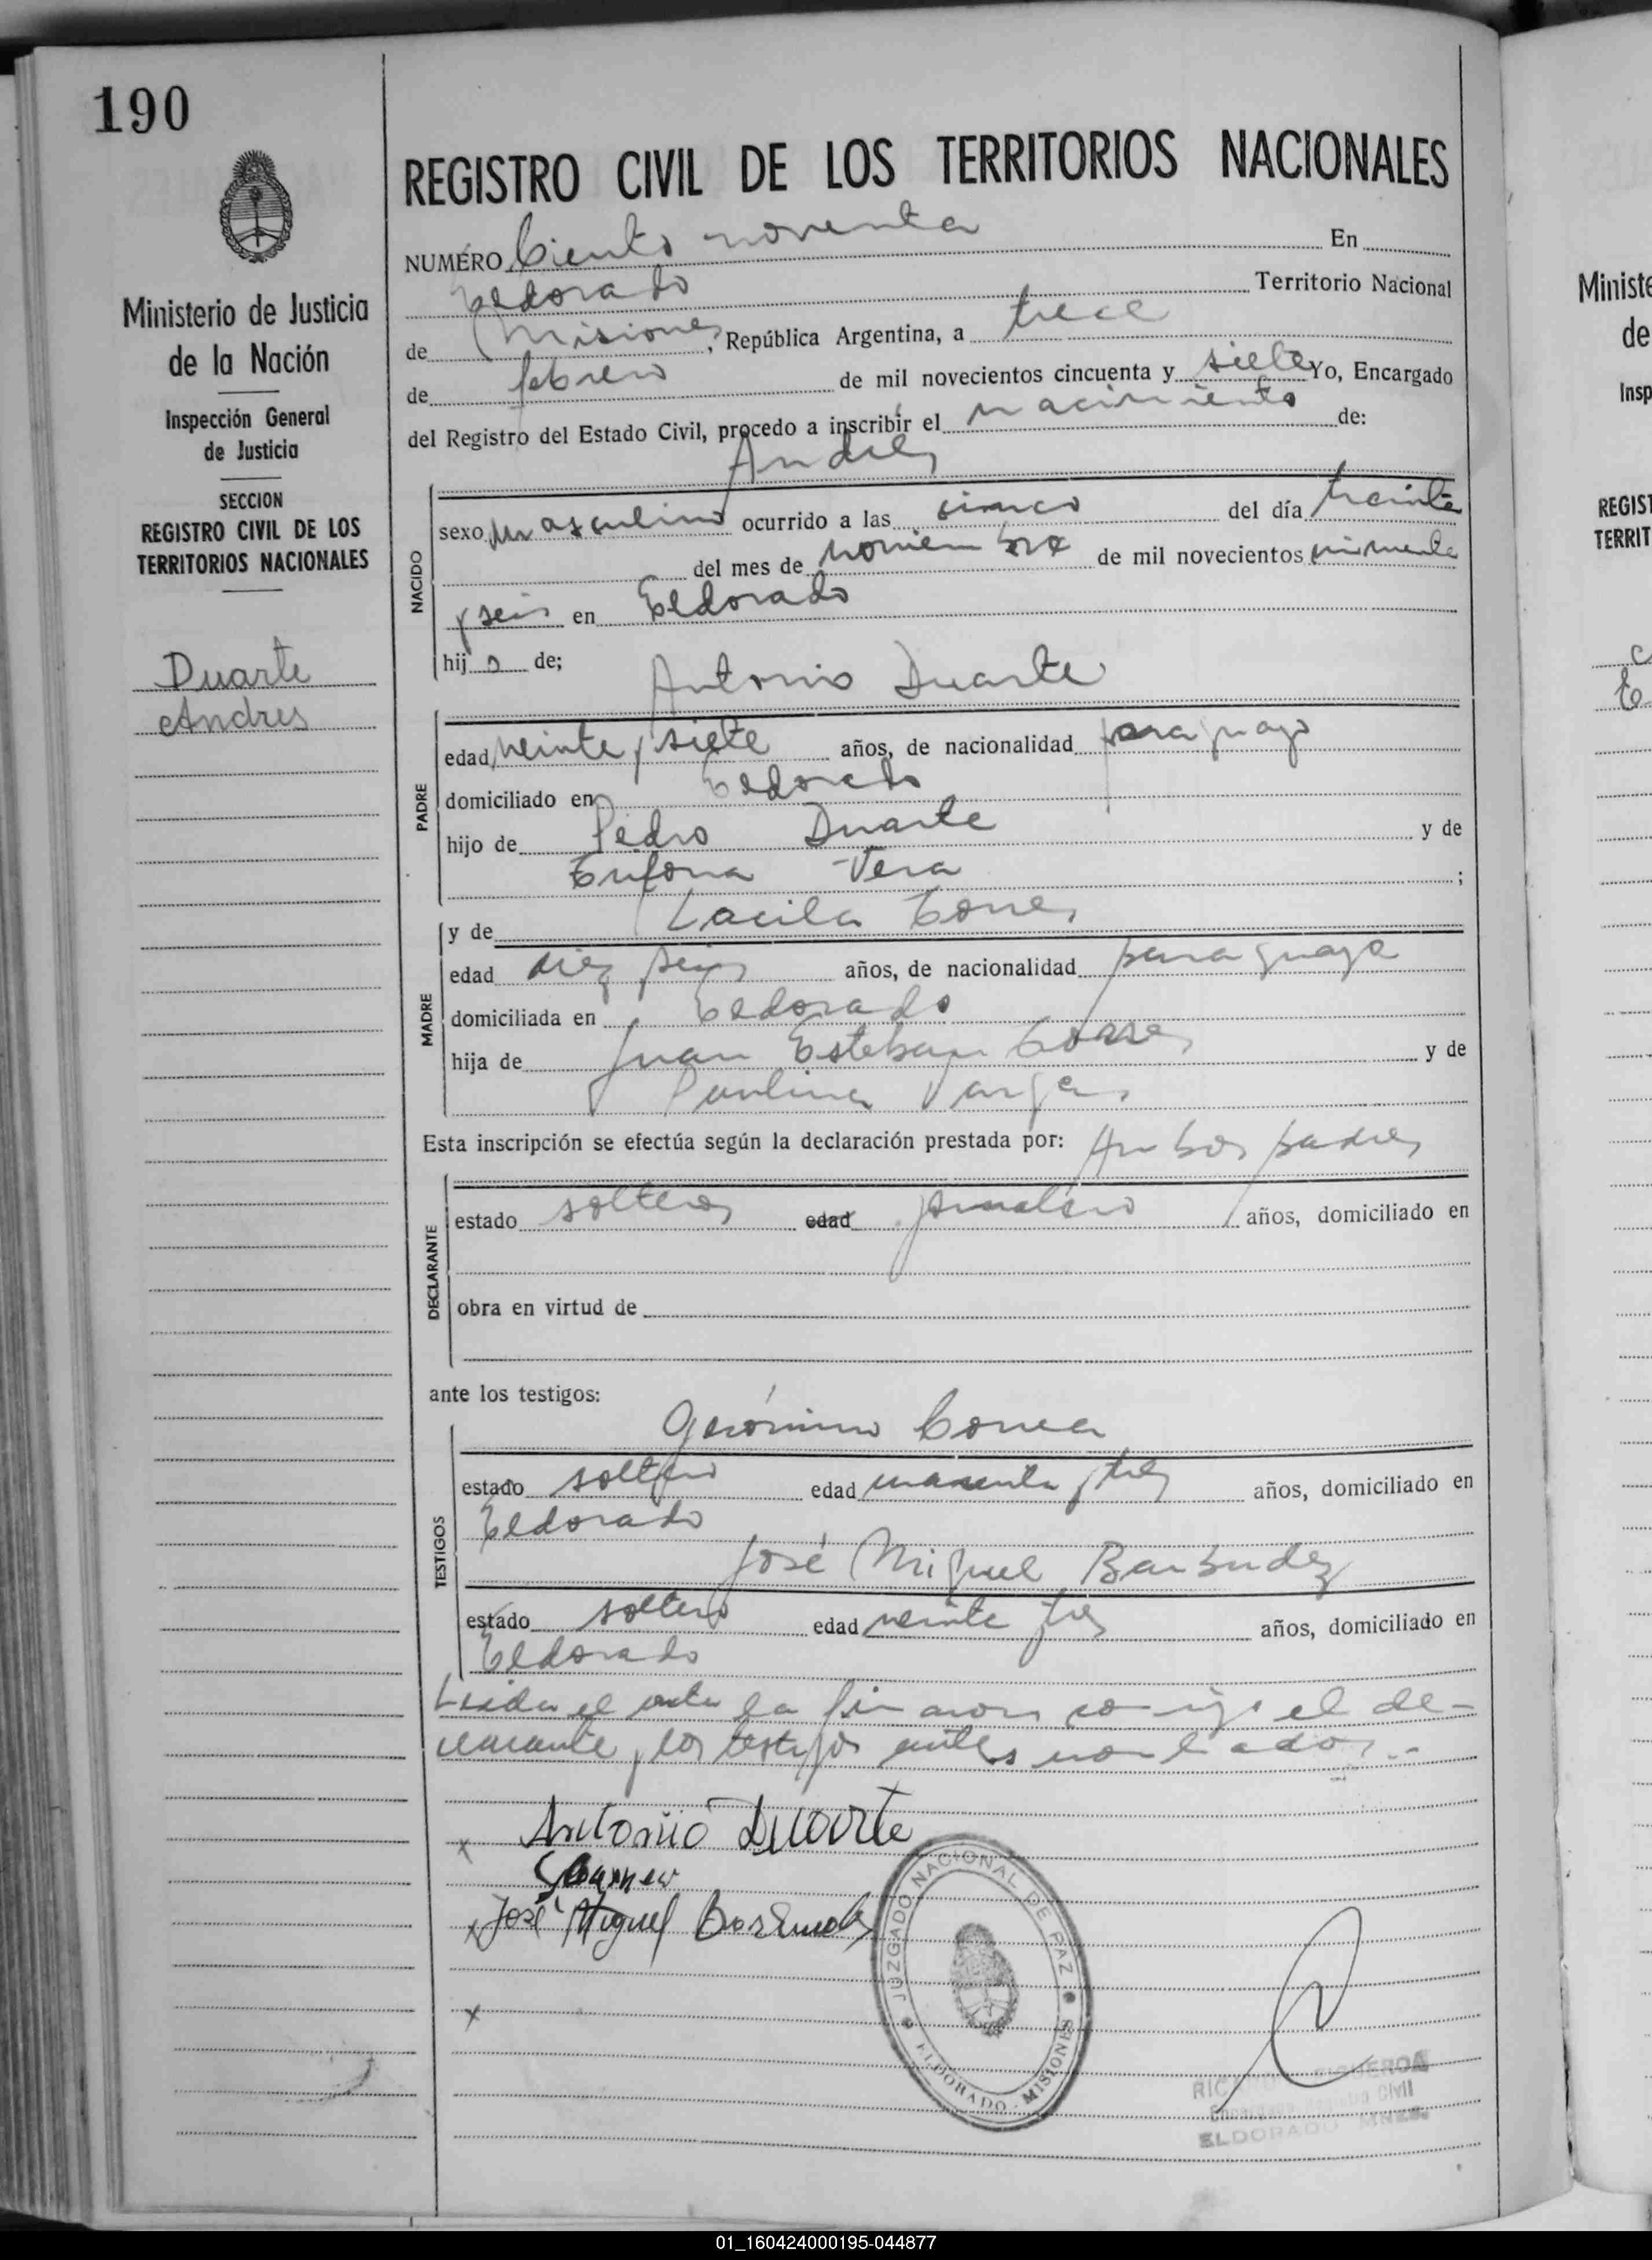 190
REGISTRO CIVIL DE LOS TERRITORIOS NACIONALES
Ministerio de Justicia
de la Nación
Inspección General
de Justicia
SECCION
REGISTRO CIVIL DE LOS
TERRITORIOS NACIONALES
Duarte
Andres
NUMERO Ciento noventa En
Eldorado Territorio Nacional
de Misiones, República Argentina, a trece
de febrero de mil novecientos cincuenta y siete Yo, Encargado
del Registro del Estado Civil, procedo a inscribir el nacimiento de:
Andres
NACIDO
sexo masculino ocurrido a las cinco del día treinta
del mes de noviembre de mil novecientos cincuenta
y seis en Eldorado
hijo de;
Antonio Duarte
PADRE
edad veinte y siete años, de nacionalidad paraguayo
domiciliado en Eldorado
hijo de Pedro Duarte y de
Vera ;
y de
MADRE
edad diez y seis años, de nacionalidad paraguaya
domiciliada en Eldorado
hija de Juan Esteban y de
Paulina Vargas
Esta inscripción se efectúa según la declaración prestada por: Ambos padres
DECLARANTE
estado solteros edad jornalero años, domiciliado en
obra en virtud de
ante los testigos:
Gerónimo Correa
TESTIGOS
estado soltero edad cuarenta y tres años, domiciliado en
Eldorado
José Miguel Barbudez
estado soltero edad veinte y tres años, domiciliado en
Eldorado
Leida el acta la firmaron conmigo el de-
clarante y los testigos antes nombrados.-
x Antonio Duarte
x José Miguel
x
JUZGADO NACIONAL DE PAZ
ELDORADO - MISIONES
FIGUEROA
Encargado Registro Civil
ELDORADO MNES.
Ministe
de
Insp
REGIST
TERRIT
01_160424000195-044877